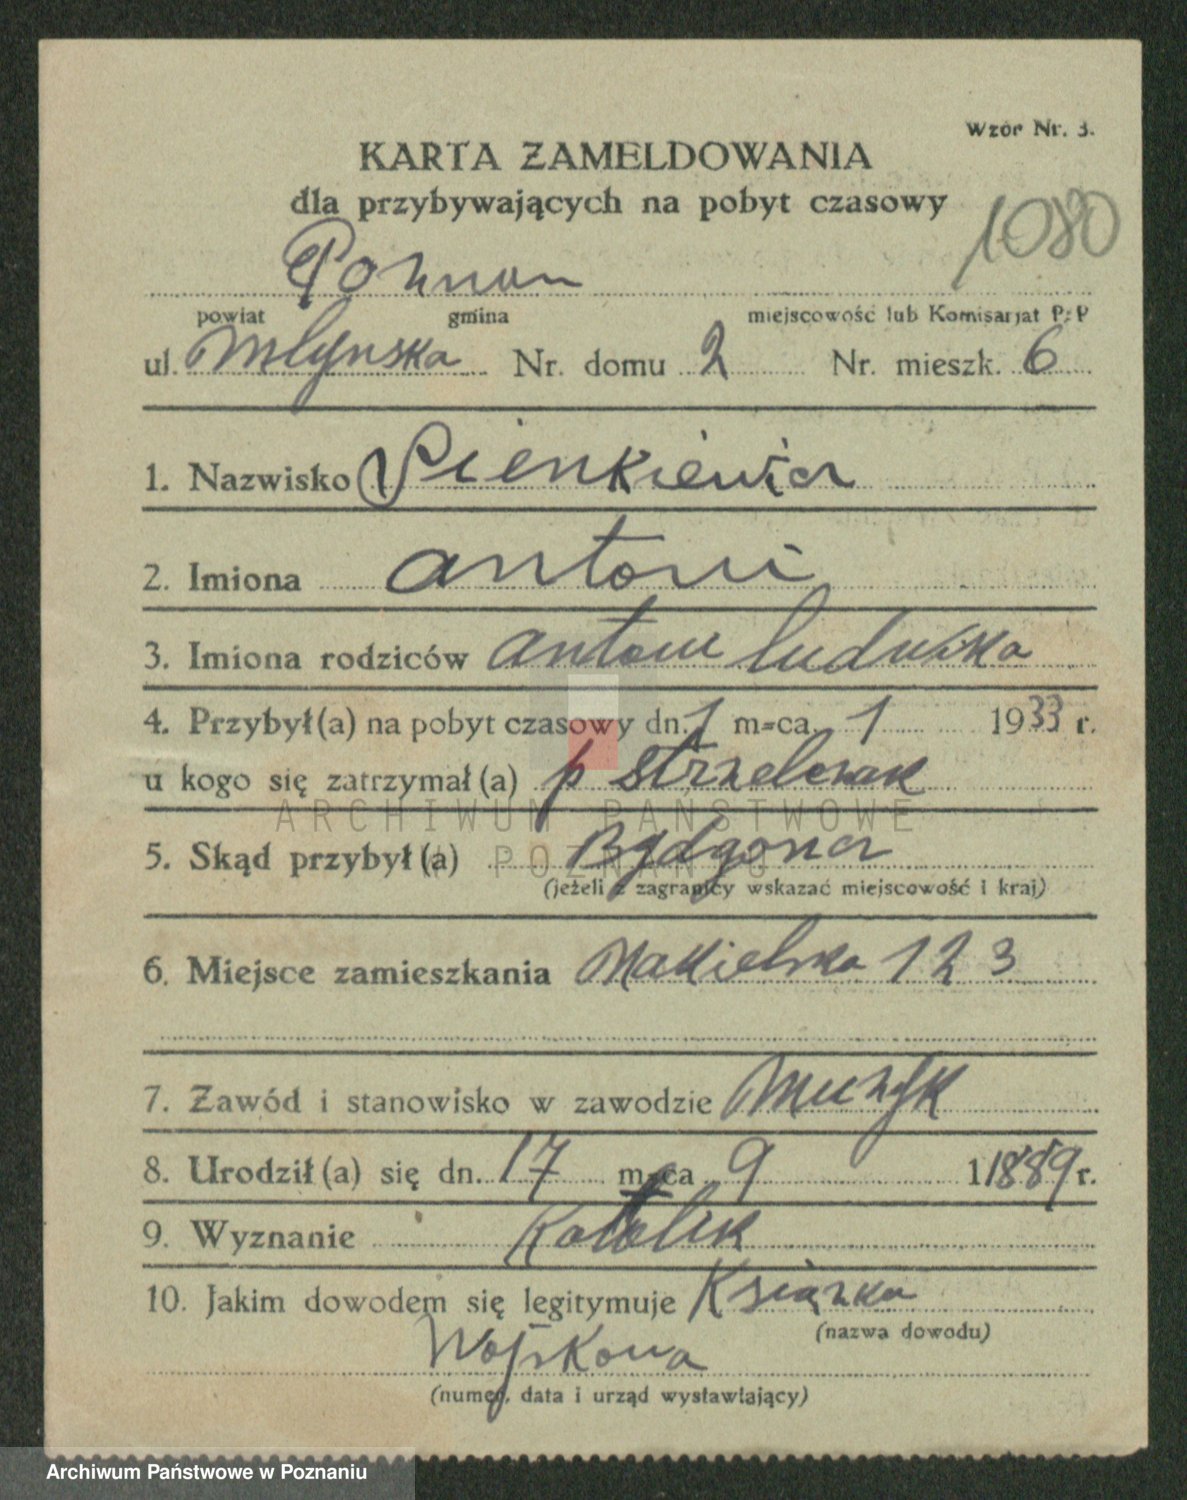 Wzór Nr. 3.
KARTA ZAMELDOWANIA
dla przybywających na pobyt czasowy
1080
Poznan
powiat gmina miejscowość lub Komisarjat P. P
ul. Młynska Nr. domu 2 Nr. mieszk. 6
1. Nazwisko Sienkiewicz
2. Imiona Antoni
3. Imiona rodziców Antoni Ludwika
4. Przybył(a) na pobyt czasowy dn. 1 m-ca 1 1933 r.
u kogo się zatrzymał(a) p Strzelczak
ARCHIWUM PAŃSTWOWE
5. Skąd przybył(a) Bydgoszcz
W POZNANIU
(jeżeli z zagranicy wskazać miejscowość i kraj)
6. Miejsce zamieszkania Nakielska 123
7. Zawód i stanowisko w zawodzie Muzyk
8. Urodził(a) się dn. 17 m-ca 9 11889 r.
9. Wyznanie Katolik
10. Jakim dowodem się legitymuje Ksiązka
(nazwa dowodu)
Wojskowa
(numer, data i urząd wystawiający)
Archiwum Państwowe w Poznaniu